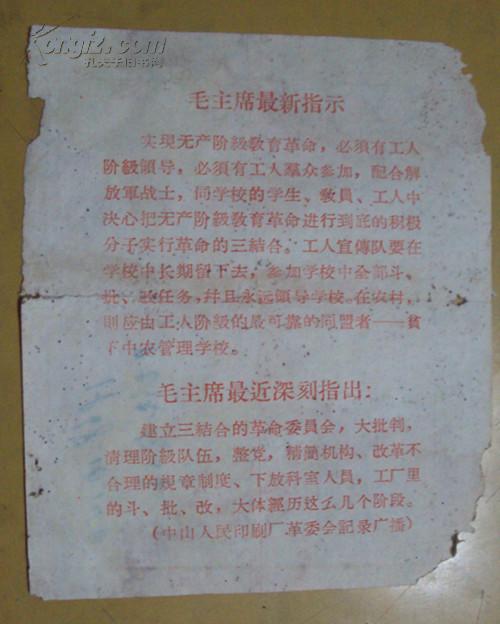 Kongfz.com
孔夫子旧书网
毛主席最新指示
实现无产阶級敎育革命，必須有工人
阶級領导，必須有工人羣众参加，配合解
放軍战士，同学校的学生、敎員、工人中
决心把无产阶級敎育革命进行到底的积极
分子实行革命的三結合。工人宣傳队要在
学校中长期留下去，参加学校中全部斗、
批、改任务，幷且永远領导学校。在农村，
则应由工人阶級的最可靠的同盟者——貧
下中农管理学校。
毛主席最近深刻指出：
建立三結合的革命委員会，大批判，
清理阶級队伍，整党，精簡机构、改革不
合理的規章制度、下放科室人員，工厂里
的斗、批、改，大体經历这么几个阶段。
（中山人民印刷厂革委会記录广播）